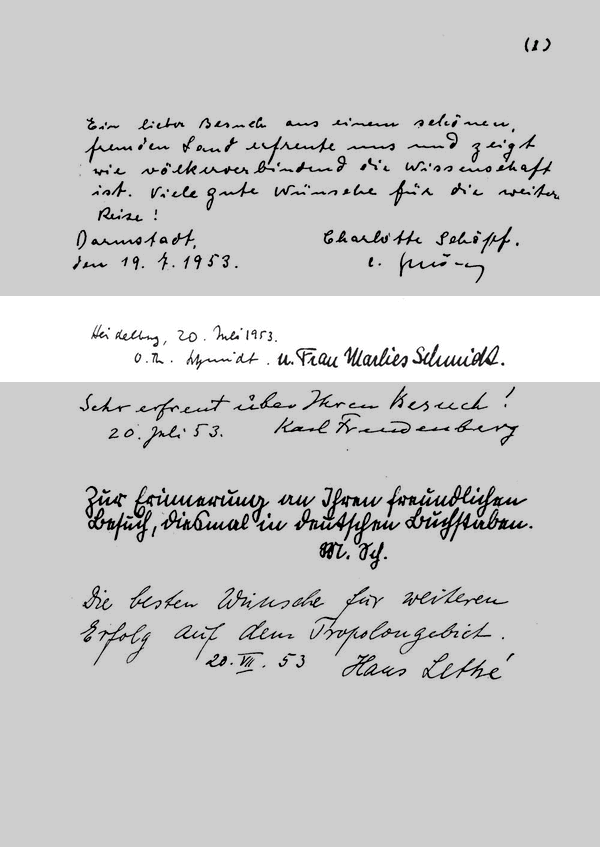 (1)
Ein lieber Besuch aus einem schönen,
fremden Land erfreute uns und zeigt
wie völkerverbindend die Wissenschaft
ist. Viele gute Wünsche für die weitere
Reise!
Darmstadt, Charlotte Schöpf.
den 19. 7. 1953. C. Schöpf
Heidelberg, 20. Juli 1953.
O. Th. Schmidt. u. Frau Marlies Schmidt.
Sehr erfreut über Ihren Besuch!
20. Juli 53. Karl Freudenberg
Zur Erinnerung an Ihren freundlichen
Besuch, diesmal in deutschen Buchstaben.
M. Sch.
Die besten Wünsche für weiteren
Erfolg auf dem Tropolongebiet.
20. VII. 53 Hans Lettré